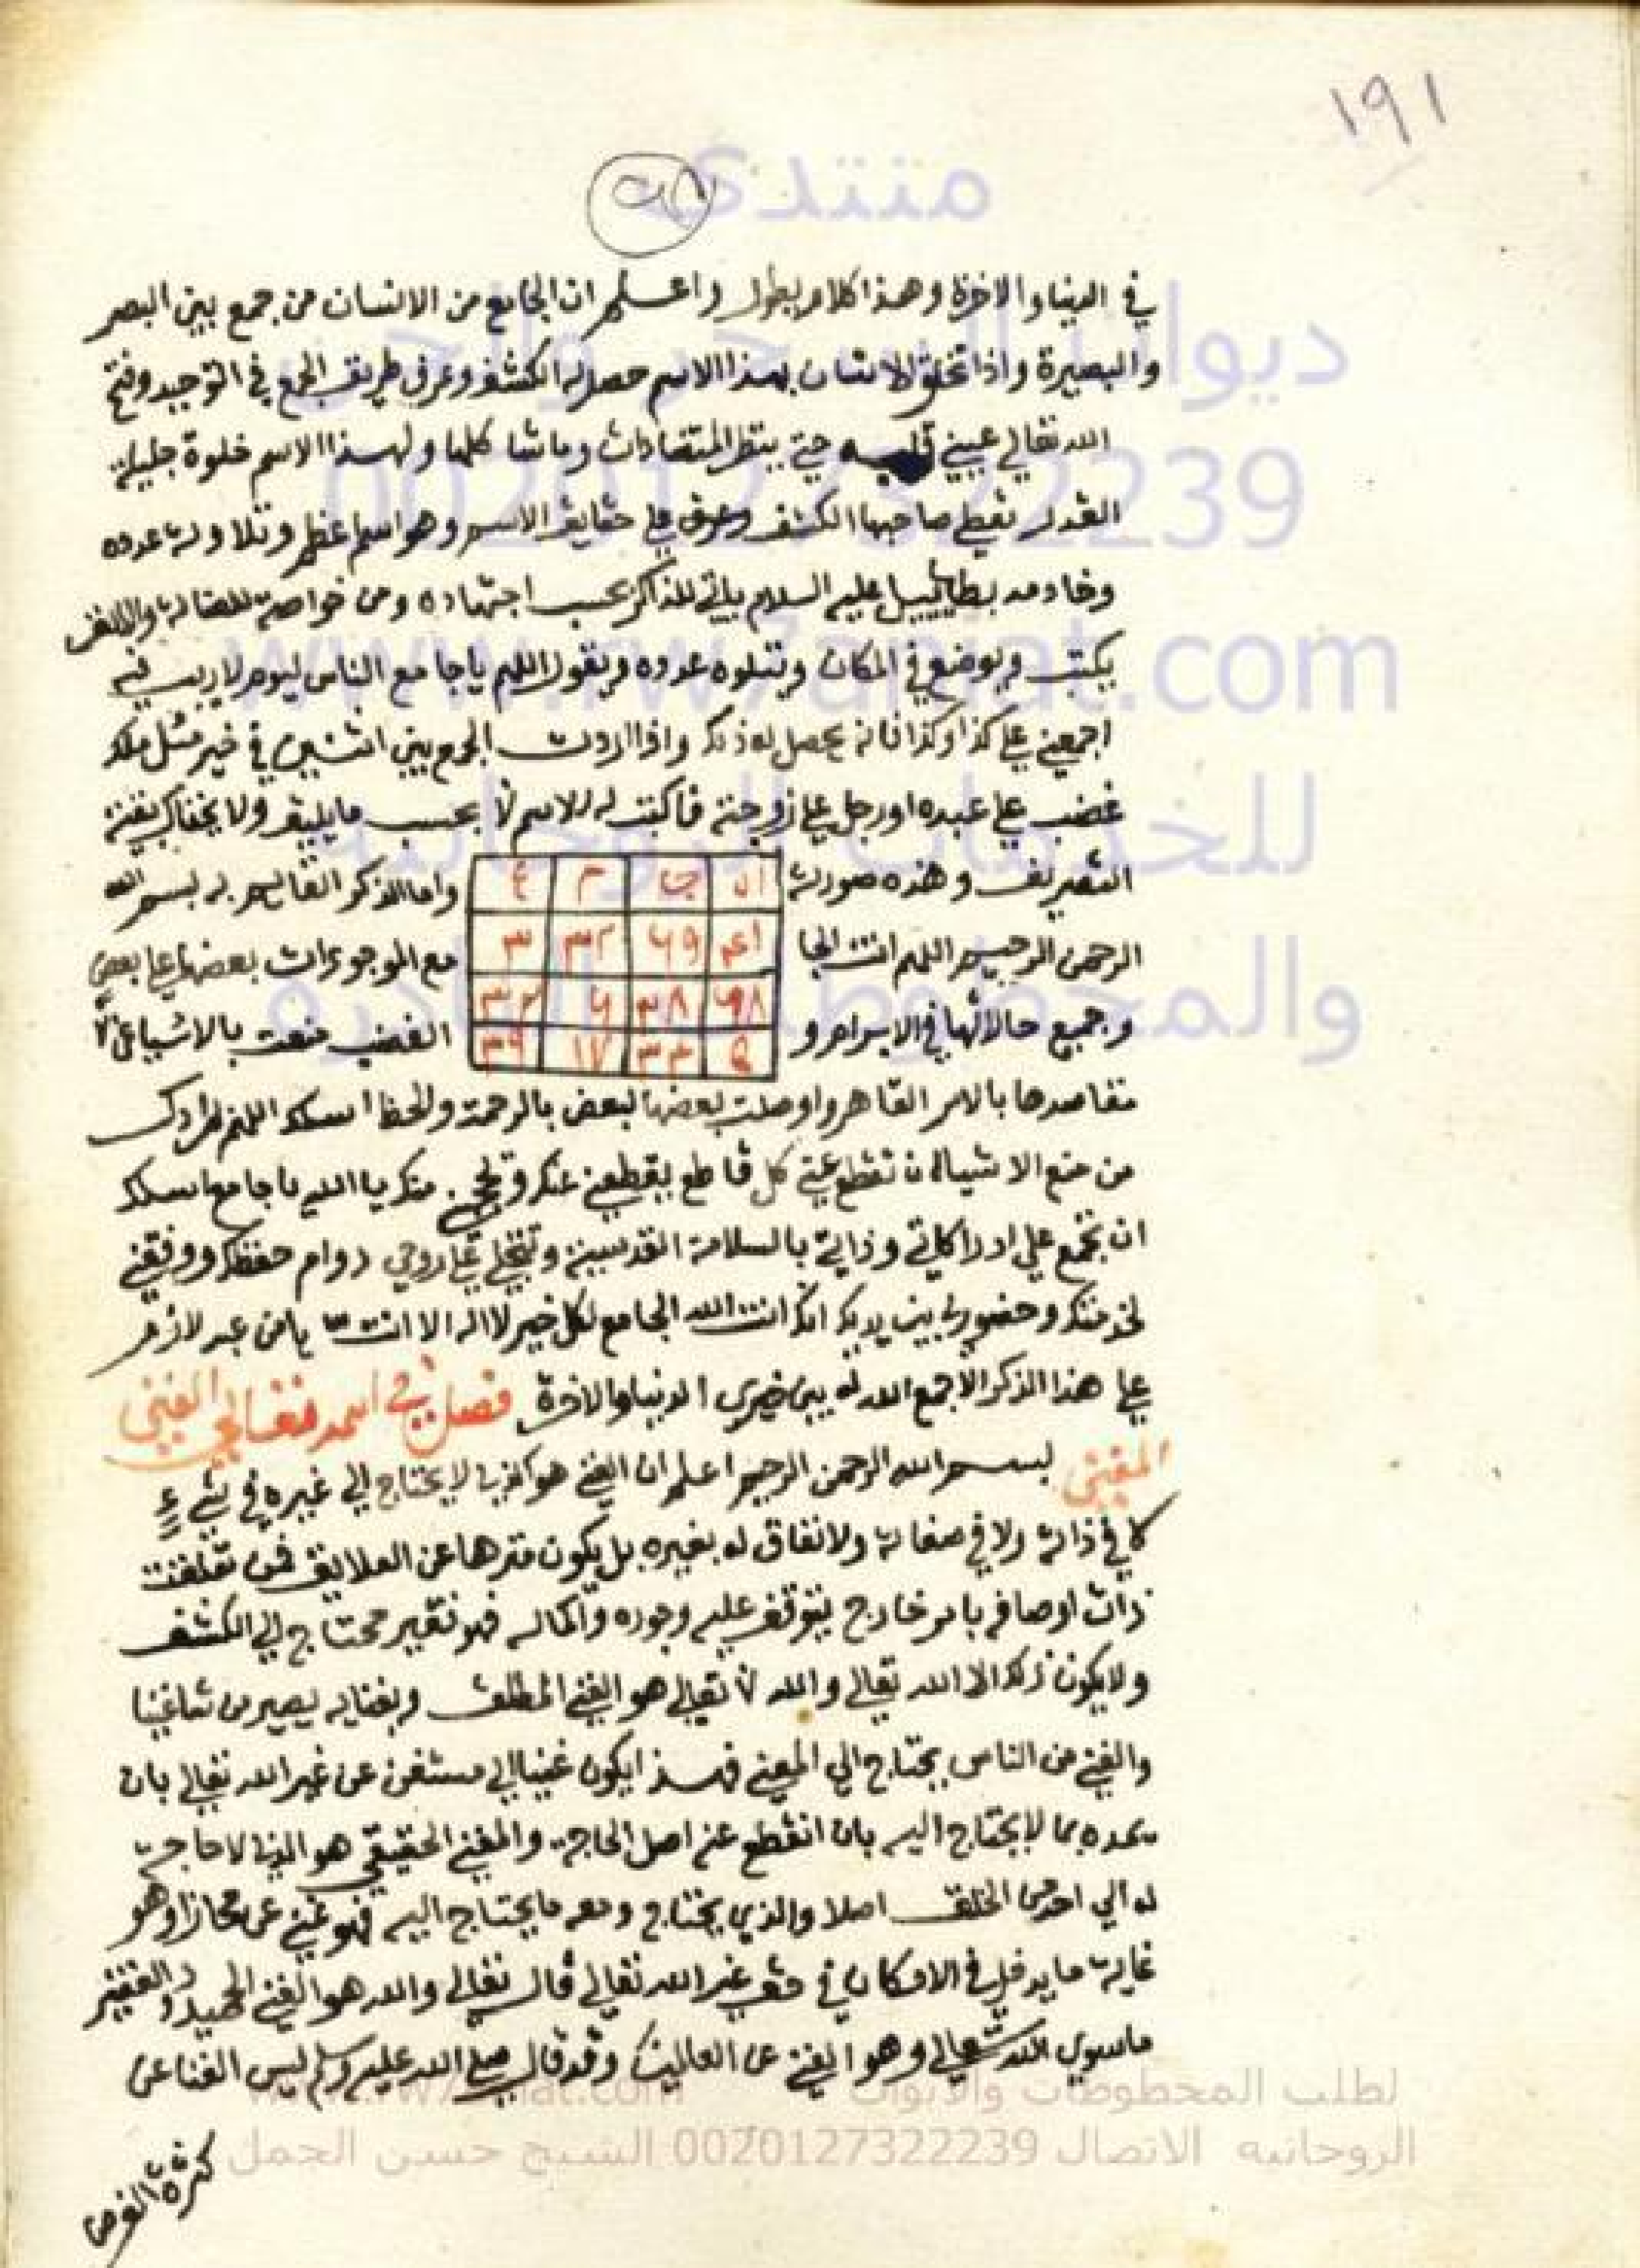 ١٩١
منتدى
في الدنيا والاخرة وهذا كلام يطول واعلم ان الجامع من الانسان من جمع بين البصر
والبصيرة واذا تخلق الانسان بهذا الاسم حصل له الكشف وعرف طريق الجمع في التوحيد وفتح
الله تعالي عيني قلبه حتي ينظر المتضادات وماشا كلها ولهذا الاسم خلوة جليلة
القدر تعطي صاحبها الكشف علي حقايق الاسم وهو اسم اعظم وتلاوته عدده
وخادمه عليه السلام ياتي للذاكر بحسب اجتهاده ومن خواصه للضالة
يكتب ويوضع في المكان وتتلوه عدده وتقول اللهم ياجامع الناس ليوم لاريب فيه
اجمعني علي كذا وكذا فانه يحصل له ذلك واذا اردت الجمع بين اثنين في خير مثل ملك
غضب علي عبده اورجل علي زوجته فاكتب له الاسم بحسب مايليق ولا يخفاك كيفية
التصريف وهذه صورته
ال جا م ع
٦٩ ٣٢ ٣
٦٨ ٣٨ ٦ ٣٢
٥ ٣٣ ١٧ ٣٩
واما الذكر القايم به بسم الله
الرحمن الرحيم اللهم انت الجا مع الموجودات بعضها علي بعض
وجميع حالاتها في الاسرار و الغضب منعت بالاشيا عن
مقاصدها بالامر القاهر واوصلت بعضها لبعض بالرحمة اسالك اللهم
من منع الاشيا ان تقطع عني كل قاطع يقطعني عنك منك يا الله ياجامع اسالك
ان تجمع علي ادراكاتي وذاتي بالسلامة القدسية علي روحي دوام حفظك ووفقني
لخدمتك وحضوري بين يديك انك انت الله الجامع لكل خير لااله الا انت مامن عبد لازم
علي هذا الذكر الاجمع الله له بين خيري الدنيا والاخرة فصل في اسمه تعالي الغني
المغني بسم الله الرحمن الرحيم اعلم ان الغني هو الذي لايحتاج الي غيره في شيء
لا في ذاته ولا في صفاته ولا تعاق له بغيره بل يكون منزها عن العلايق فمن تعلقت
ذات اوصافه بامر خارج يتوقف عليه وجوده وكماله فهو فقير محتاج الي الكشف
ولايكون ذلك الا الله تعالي والله تعالي هو الغني المطلق وبغنايه يصير من شا غنيا
والغني من الناس يحتاج الي المغني فهذا يكون غنيا اي مستغن عن غير الله تعالي بان
يمده بما لايحتاج اليه بان انقطع عنه اصل الحاجة والمغني الحقيقي هو الذي لاحاجة
له الي احد من الخلق اصلا والذي يحتاج ومعه مايحتاج اليه فهو غني عن مجازا وهو
غاية مايدخل في الامكان في حق غير الله تعالي قال تعالي والله هو الغني الحميد والفقير
ماسوي الله تعالي وهو الغني عن العالمين وقد قال صلي الله عليه وسلم ليس الغنا عن
كثرة العرض
ديوان السحر والجن
0020127322239
www.rw7aniat.com
للخدمات الروحانية
والمخطوطات النادرة
لطلب المخطوطات والابواب www.rw7aniat.com
الروحانيه الاتصال 0020127322239 الشيخ حسن الجمل